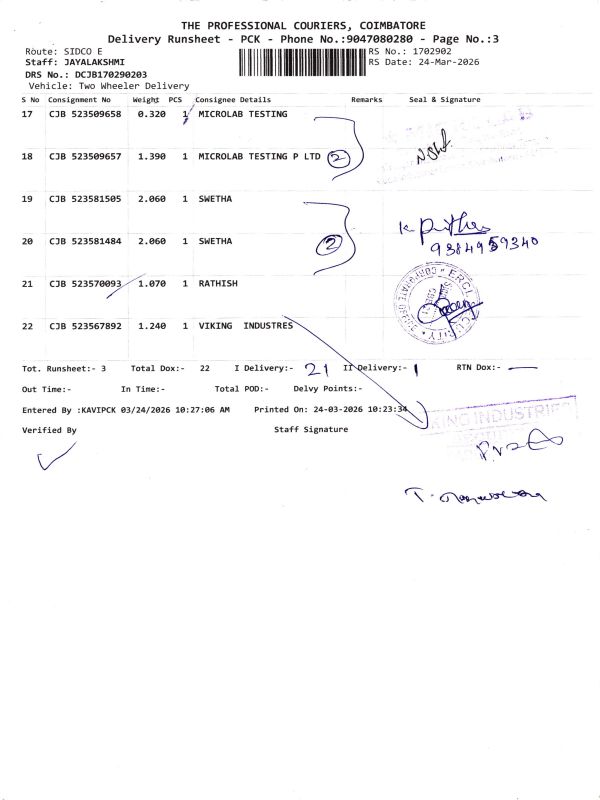 THE PROFESSIONAL COURIERS, COIMBATORE
Delivery Runsheet - PCK - Phone No.:9047080280 - Page No.:3
Route: SIDCO E RS No.: 1702902
Staff: JAYALAKSHMI RS Date: 24-Mar-2026
DRS No.: DCJB170290203
Vehicle: Two Wheeler Delivery
S No Consignment No Weight PCS Consignee Details Remarks Seal & Signature
17 CJB 523509658 0.320 1 MICROLAB TESTING
18 CJB 523509657 1.390 1 MICROLAB TESTING P LTD 2
19 CJB 523581505 2.060 1 SWETHA
9384959340
20 CJB 523581484 2.060 1 SWETHA 2
21 CJB 523570093 1.070 1 RATHISH
22 CJB 523567892 1.240 1 VIKING INDUSTRES
Tot. Runsheet:- 3 Total Dox:- 22 I Delivery:- 21 II Delivery:- 1 RTN Dox:- —
Out Time:- In Time:- Total POD:- Delvy Points:-
Entered By :KAVIPCK 03/24/2026 10:27:06 AM Printed On: 24-03-2026 10:23:34
KING INDUSTRIES
Verified By Staff Signature